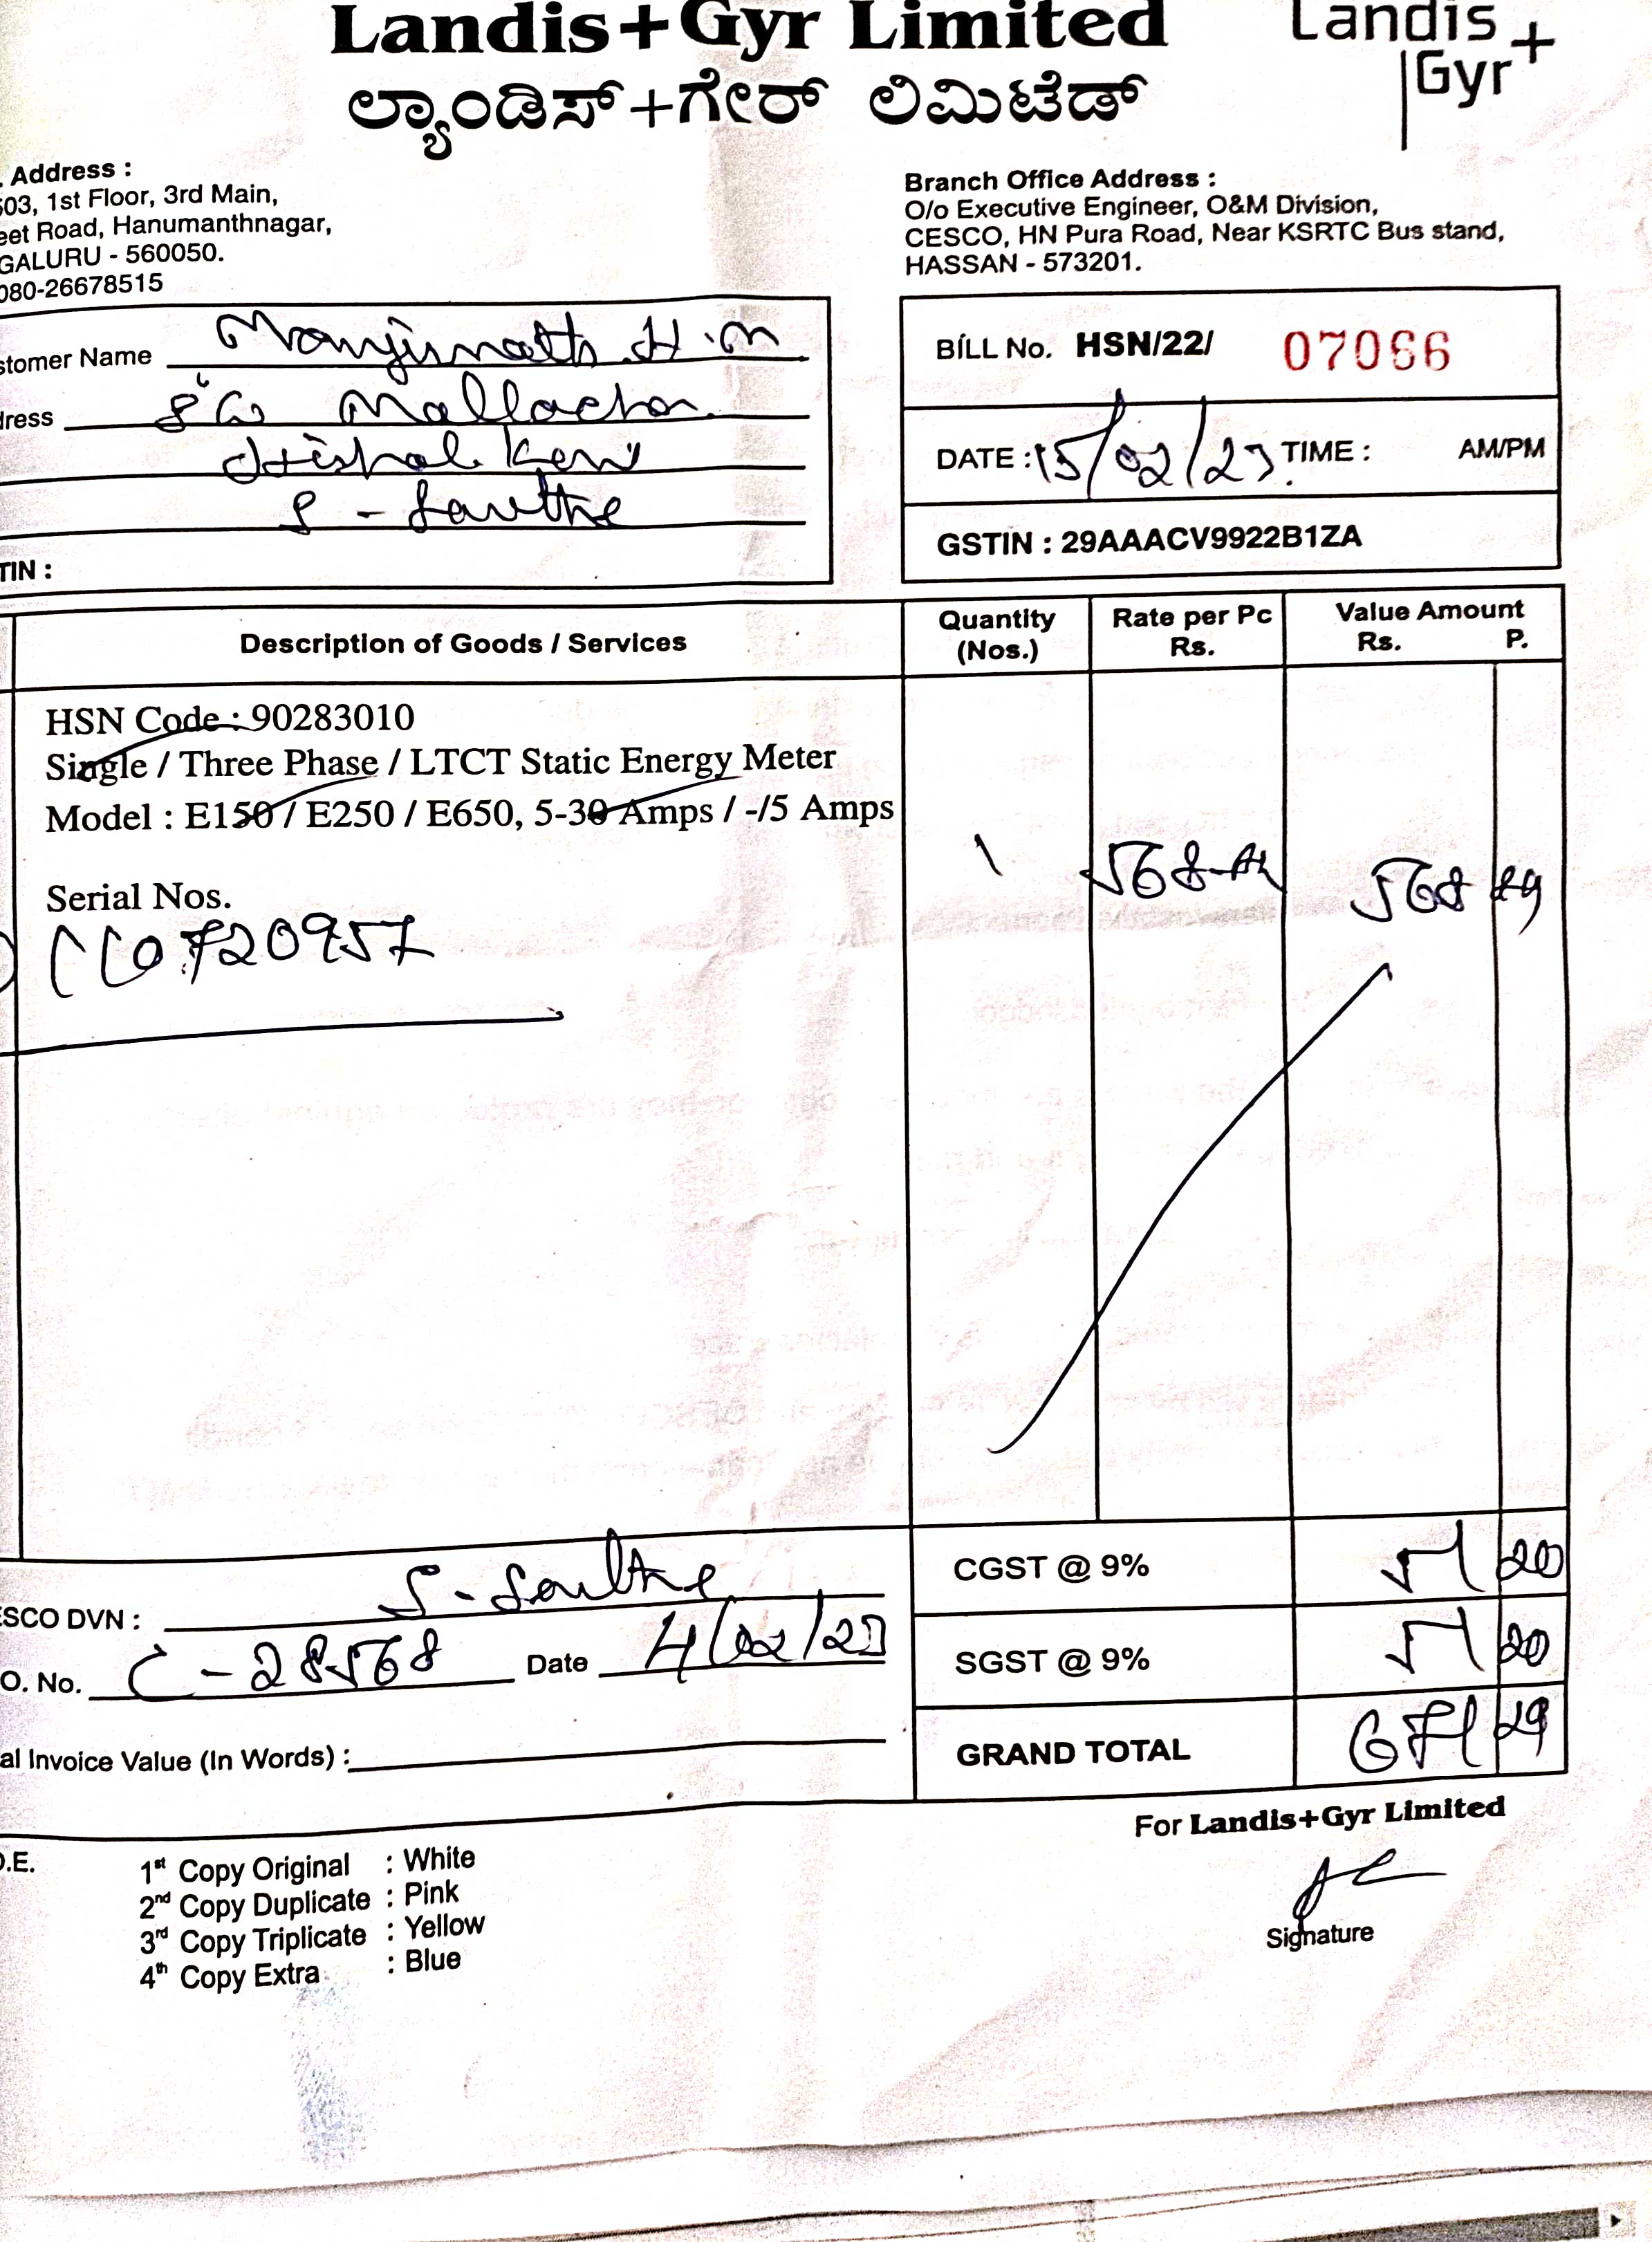 Landis+Gyr Limited
Landis
Gyr+
ಲ್ಯಾಂಡಿಸ್+ಗೇರ್ ಲಿಮಿಟೆಡ್
. Address :
503, 1st Floor, 3rd Main,
eet Road, Hanumanthnagar,
GALURU - 560050.
080-26678515
Branch Office Address :
O/o Executive Engineer, O&M Division,
CESCO, HN Pura Road, Near KSRTC Bus stand,
HASSAN - 573201.
stomer Name Manjunath H.M
dress
TIN :
BILL No. HSN/22/ 07066
DATE : 15/02/23 TIME : AM/PM
GSTIN : 29AAACV9922B1ZA
Description of Goods / Services
Quantity (Nos.)
Rate per Pc Rs.
Value Amount Rs. P.
HSN Code : 90283010
Single / Three Phase / LTCT Static Energy Meter
Model : E150 / E250 / E650, 5-30 Amps / -/5 Amps
1 568 568 89
Serial Nos.
720957
CGST @ 9% 51 20
ESCO DVN :
SGST @ 9% 51 20
O. No. C-28568 Date 4/02/23
GRAND TOTAL 671 29
al Invoice Value (In Words) :
For Landis+Gyr Limited
O.E.
1st Copy Original : White
2nd Copy Duplicate : Pink
3rd Copy Triplicate : Yellow
4th Copy Extra : Blue
Signature